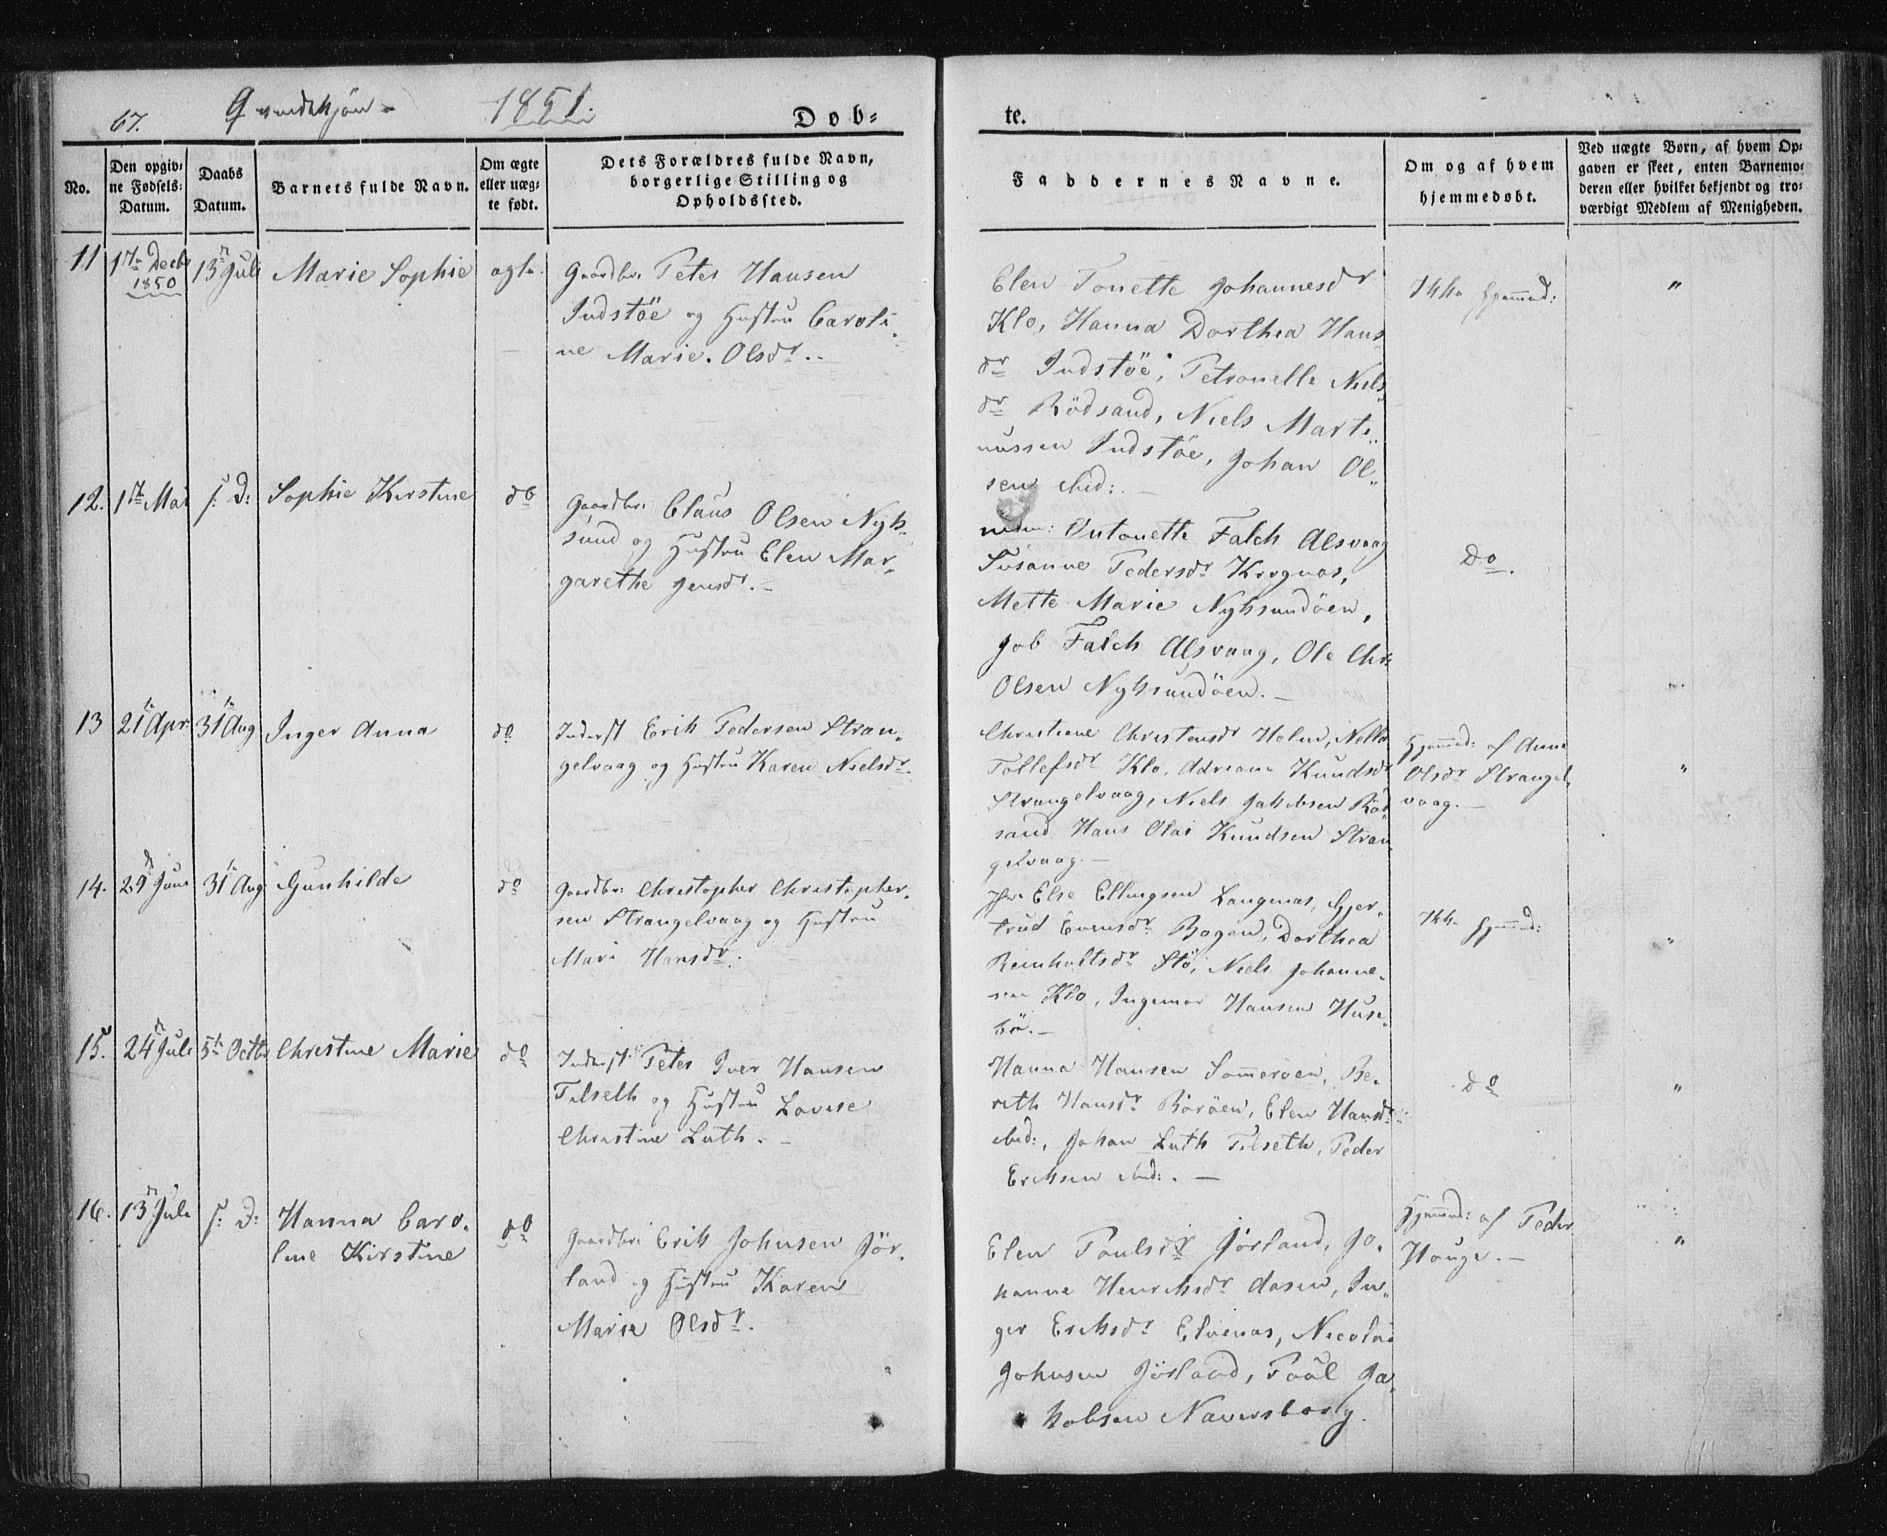 67. Qvindekjøn 1851. Døb=
te.
No.
Den opgiv=
ne Fødsels=
Datum.
Daabs
Datum.
Barnets fulde Navn.
Om ægte
eller uæg=
te født.
Dets Forældres fulde Navn,
borgerlige Stilling og
Opholdssted.
Faddernes Navne.
Om og af hvem
hjemmedøbt.
Ved uægte Børn, af hvem Op=
gaven er skeet, enten Barnemo=
deren eller hvilket bekjendt og tro=
værdigt Medlem af Menigheden.
11
1ste Decbr
1850
13 Juli
Marie Sophie
ægte.
Gaardbr: Peter Hansen
Indstöe og Hustru Caroli
ne Marie Olsdr.
Elen Tonette Johannesdr
Klo, Hanna Dorthea Hans
dr Indstöe, Petronelle Niels
dr Rödsand, Niels Marti
nussen Indstöe, Johan Ol
sen ibid:
Ikke hjemmed:
"
12.
1ste Mai
s: D:
Sophie Kirstine
do
Gaardbr: Claus Olsen Nyk
sund og Hustru Elen Mar
garethe Jensdr.
Antonette Falch Alsvaag
Susanne Pedersdr Krognæs,
Mette Marie Nyksundöen,
Job Falch Alsvaag, Ole Chr:
Olsen Nyksundöen.
Do.
13
21 Apr
31 Aug
Inger Anna
do
Inderst Erik Pedersen Stran
gelvaag og Hustru Karen Nielsdr.
Christiane Christensdr Holm, Nella
Tollefsdr Klo, Adriane Knudsdr
Strangelvaag, Niels Jakobsen Röd
sand Hans Olai Knudsen Stran
gelvaag.
Hjemmed: af Anne
Olsdr Strangel
vaag.
"
14.
29 Juni
31 Aug
Gunhilde
do
Gaardbr: Christopher Christopher
sen Strangelvaag og Hustru
Mari Hansdr.
Else Ellingsen Langenæs, Gjer
trud Evensdr Bogen, Dorthea
Reinholtsdr Stö, Niels Johanne
sen Klo, Ingemar Hansen Huse
bö.
Ikke hjemmd:
"
15.
24 Juli
5te Octbr
Christine Marie
do
Inderst Peter Iver Hansen
Tilseth og Hustru Lovise
Christine Luth.
Hanna Hansen Sommeröen, Be
reth Hansdr Boröen, Elen Hansdr
ibid:, Johan Luth Tilseth, Peder
Eriksen ibid:.
Do
"
16.
13 Juli
s: D:
Hanna Caro
line Kirstine
do
Gaardbr: Erik Johnsen Jör
land og Hustru Karen
Marie Olsdr.
Elen Poulsdr Jörland, Jo
hanne Henriksdr Aasen, In
ger Eriksdr Elvenæs, Nicolai
Johnsen Jörland, Paul Ja
kobsen Naversborg.
Hjemmed: af Peder
Houge.
"